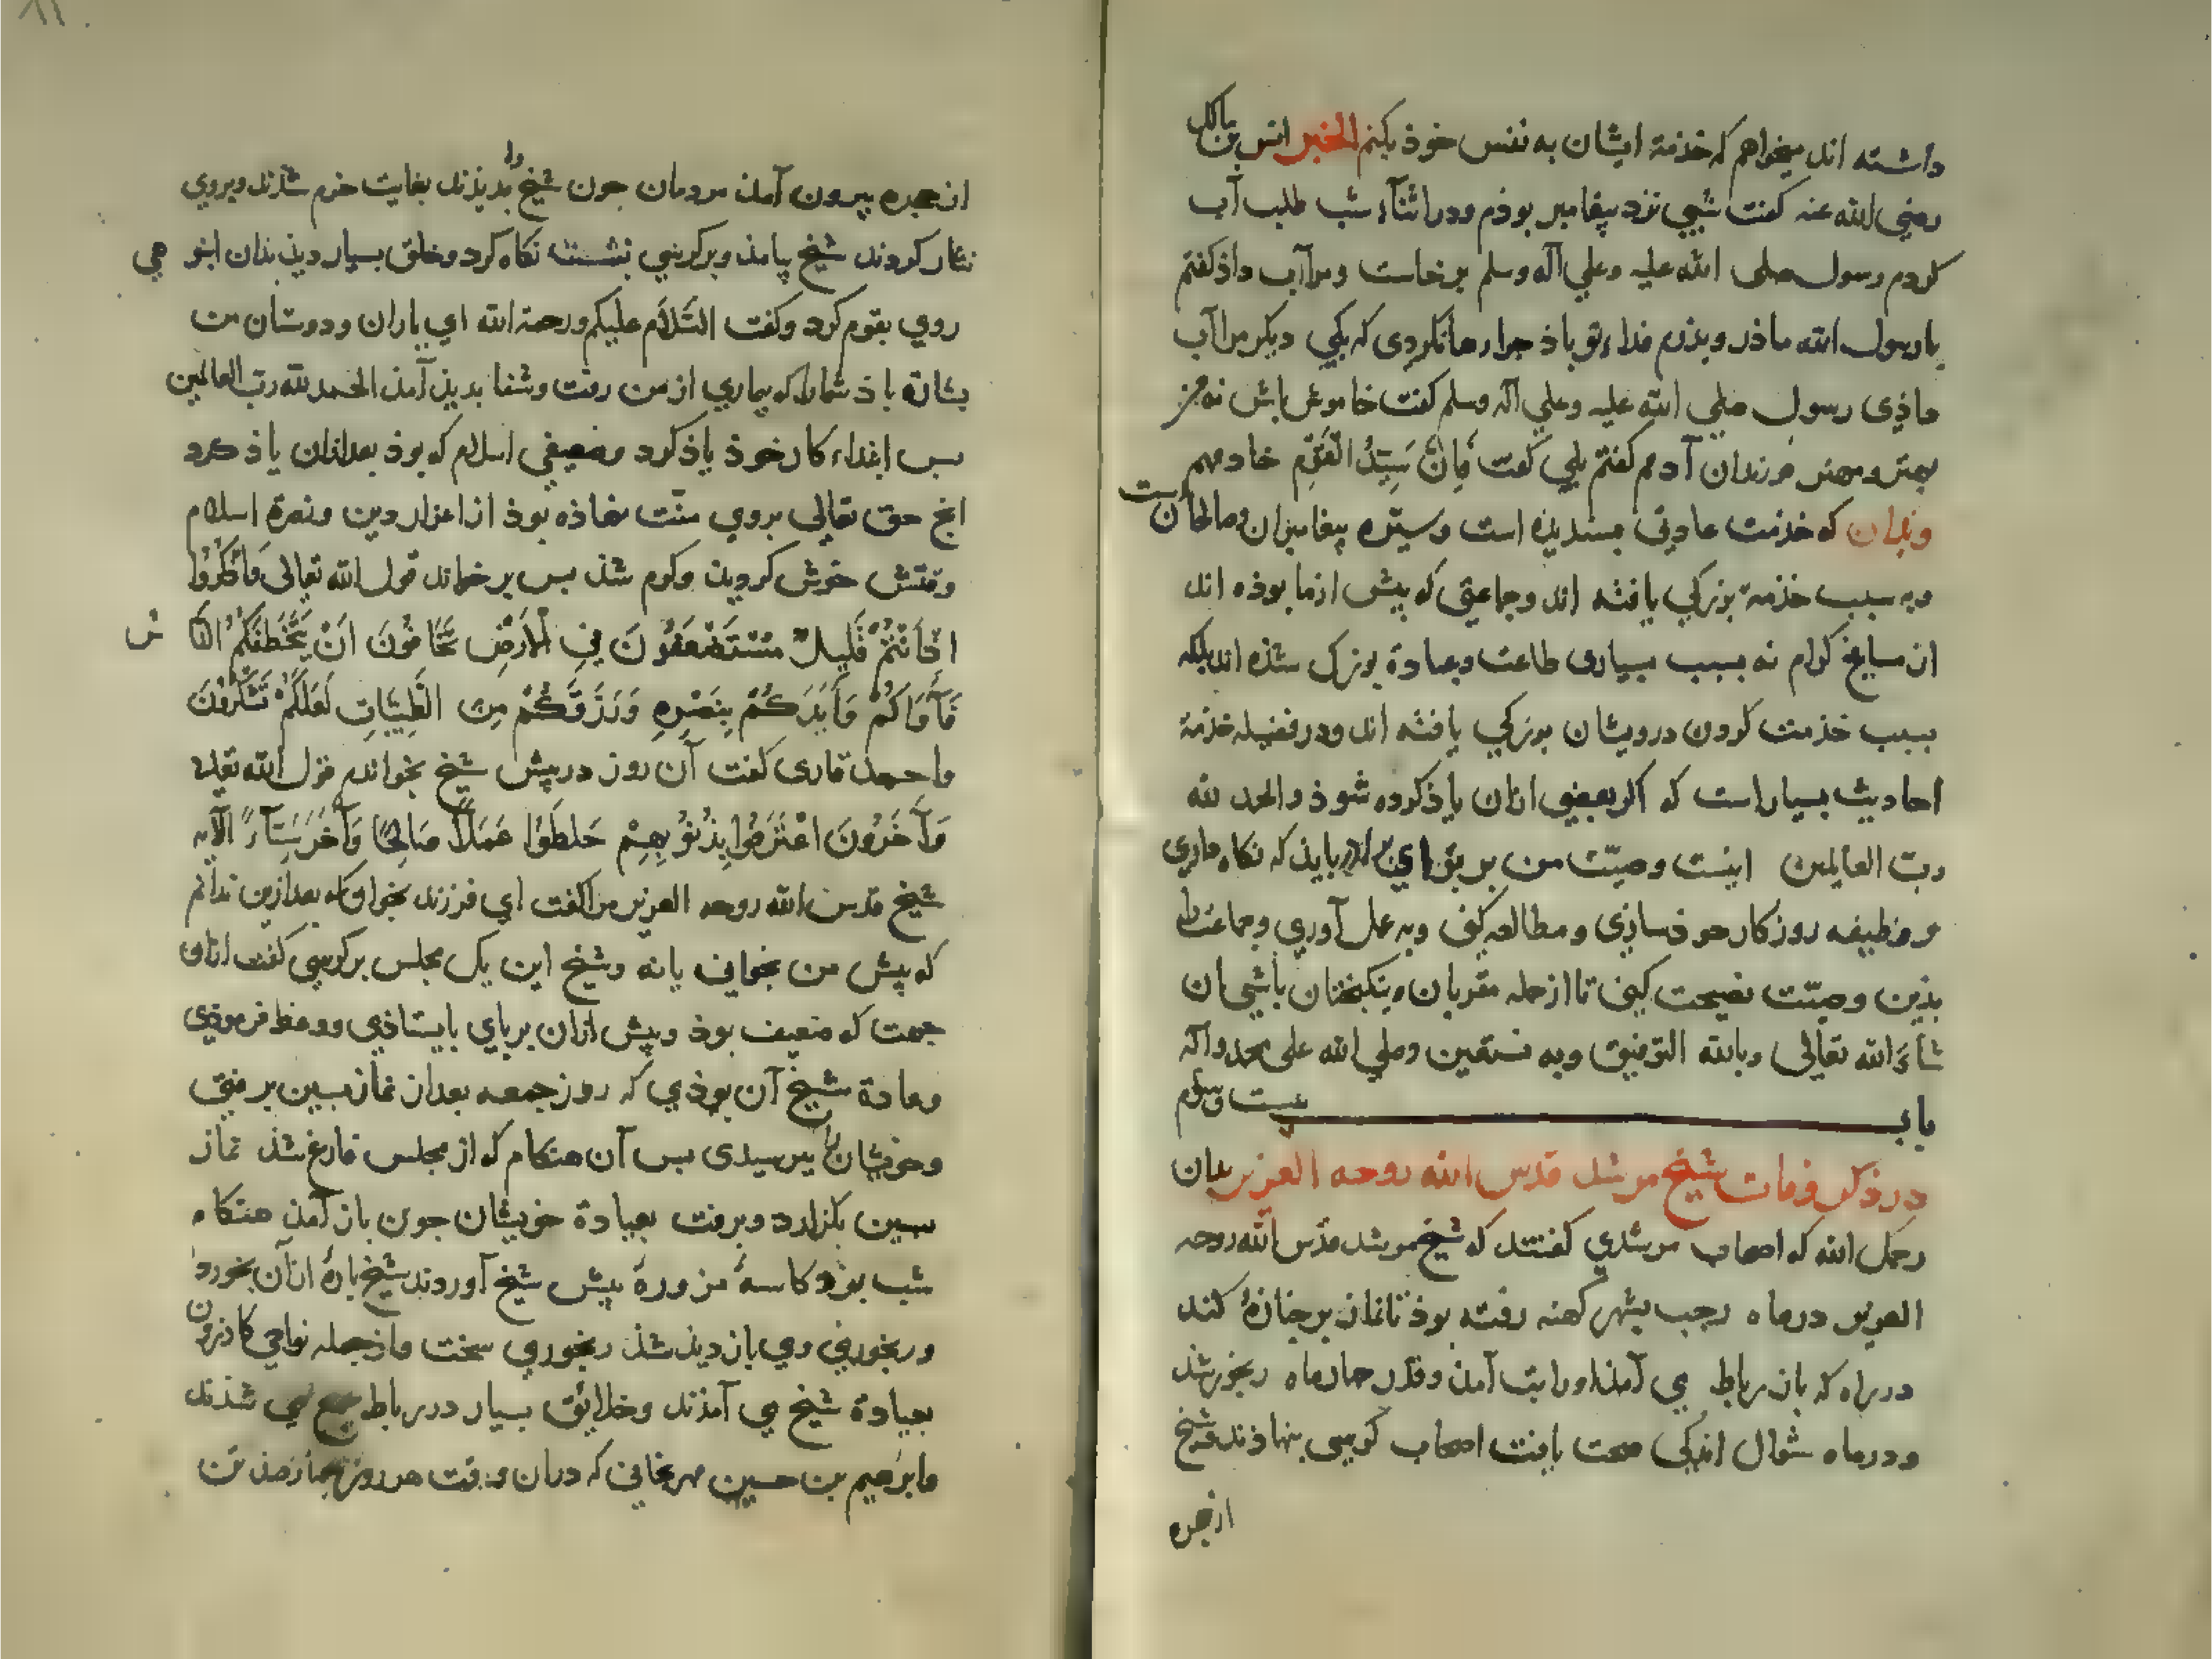 داشته اند میخواهم که خذمة ایشان به نفس خوذ بکنم الخبر انس بن مالک
رضي الله عنه کفت شبي نزد پیغامبر بوذم ودر اثنآء شب طلب آب
کردم رسول صلی الله علیه وعلي آله وسلم برخاست ومرا آب داذ کفتم
یا رسول الله ماذر وپذرم فداء تو باذ چرا رها نکردی که یکي دیکر مرا آب
داذی رسول صلي الله علیه وعلي آله وسلم کفت خاموش باش نه من
بهتر ومهتر فرزندان آدمم کفتم بلي کفت فَاِنَّ سَیِّدُ الْقَوْمِ خادمهم
وبدان که خذمت عادتي پسندیذه است وسیرة پیغامبران وصالحانست
وبه سبب خذمة بزرکي یافته اند وجماعتی که پیش از ما بوذه اند
از مشایخ کرام نه بسبب بسیاری طاعت وعبادة بزرک شذه اند بلکه
بسبب خذمت کردن درویشان بزرکي یافته اند ودر فضیله خذمة
احادیث بسیار است که اکر بعضي ازان یاذ کرده شوذ والحمد لله
ربّ العالمین اینست وصیّت من بر تو اي برادر بایذ که نکاه داري
ووظیفه روزکار خوذ سازي ومطالعه کني وبه عمل آوري وجماعت را
بذین وصیّت نصیحت کني تا از جمله مقربان ونیکبختان باشي ان
شآءَ الله تعالی وبالله التوفیق وبه نستعین وصلي الله علی محمد وآله
باب بیست وسوم
در ذکر وفات شیخ مرشد قدس الله روحه العزیز بدان
رحمک الله که اصحاب مرشدي کفتند که شیخ مرشد قدّس الله روحه
العزیز در ماه رجب بشهر کهنه رفته بوذ تا نماز بر جنازهٔ کند
در راه که باز رباط مي آمذ او را تب آمذ وقدر چهار ماه رنجور شذ
ودر ماه شوال اندکی صحت یافت اصحاب کرسي بنهاذند وشیخ
از حجره
از حجره بیرون آمذ مردمان چون شیخ را بدیذند بغایت خرم شذند وبروي
نثار کردند شیخ بیامذ وبر کرسي بنشست نکاه کرد وخلق بسیار دیذ بذان انبوهي
روي بقوم کرد وکفت السَّلام علیکم ورحمة الله اي یاران ودوستان من
بشارة باذ شما را که بیماري از من رفت وشفا بدیذ آمذ الحمد لله ربّ العالمین
پس ابتداء کار خوذ یاذ کرد وضعیفي اسلام که بوذ بعد ازان یاذ کرد
انچ حق تعالي بروي منّت نهاذه بوذ از اعزاز دین ونصرة اسلام
وقتش خوش کردید وکرم شذ پس برخواند قول الله تعالی وَاذْکُرُوا
اِذْ اَنْتُمْ قَلِیلٌ مُسْتَضْعَفُونَ فِي الْاَرْضِ تَخَافُونَ اَنْ یَتَخَطَّفَکُمُ النَّاسُ
فَآوَاکُمْ وَاَیَّدَکُمْ بِنَصْرِهِ وَرَزَقَکُمْ مِنَ الطَّیِّبَاتِ لَعَلَّکُمْ تَشْکُرُونَ
واحمد قاری کفت آن روز در پیش شیخ بخواندم قول الله تعالی
وَآخَرُونَ اعْتَرَفُوا بِذُنُوبِهِمْ خَلَطُوا عَمَلًا صَالِحًا وَآخَرَ سَیِّئًا الآیه
شیخ قدس الله روحه العزیز مرا کفت اي فرزند بخوان که بعد ازین ندانم
که پیش من بخواني یا نه وشیخ این یک مجلس بر کرسي کفت ازان
جهت که ضعیف بوذ وپیش ازان بر پاي بایستاذي ووعظ فرموذي
وعادة شیخ آن بوذي که روز جمعه بعد از نماز پسین برفتي
وخویشان را بپرسیدی پس آن هنکام که از مجلس فارغ شذ نماز
پسین بکزارد وبرفت بعیادة خویشان چون باز آمذ هنکام
شب بوذ کاسهٔ مزورهٔ پیش شیخ آوردند شیخ پارهٔ ازآن بخورد
ورنجوري وي باز دیذ شذ رنجوري سخت واز جمله نواحي کازرون
بعیادة شیخ مي آمذند وخلائق بسیار در رباط جمع مي شذند
وابرهیم بن حسین مهرنجاني که دران وقت هر روز چهارصذ تن